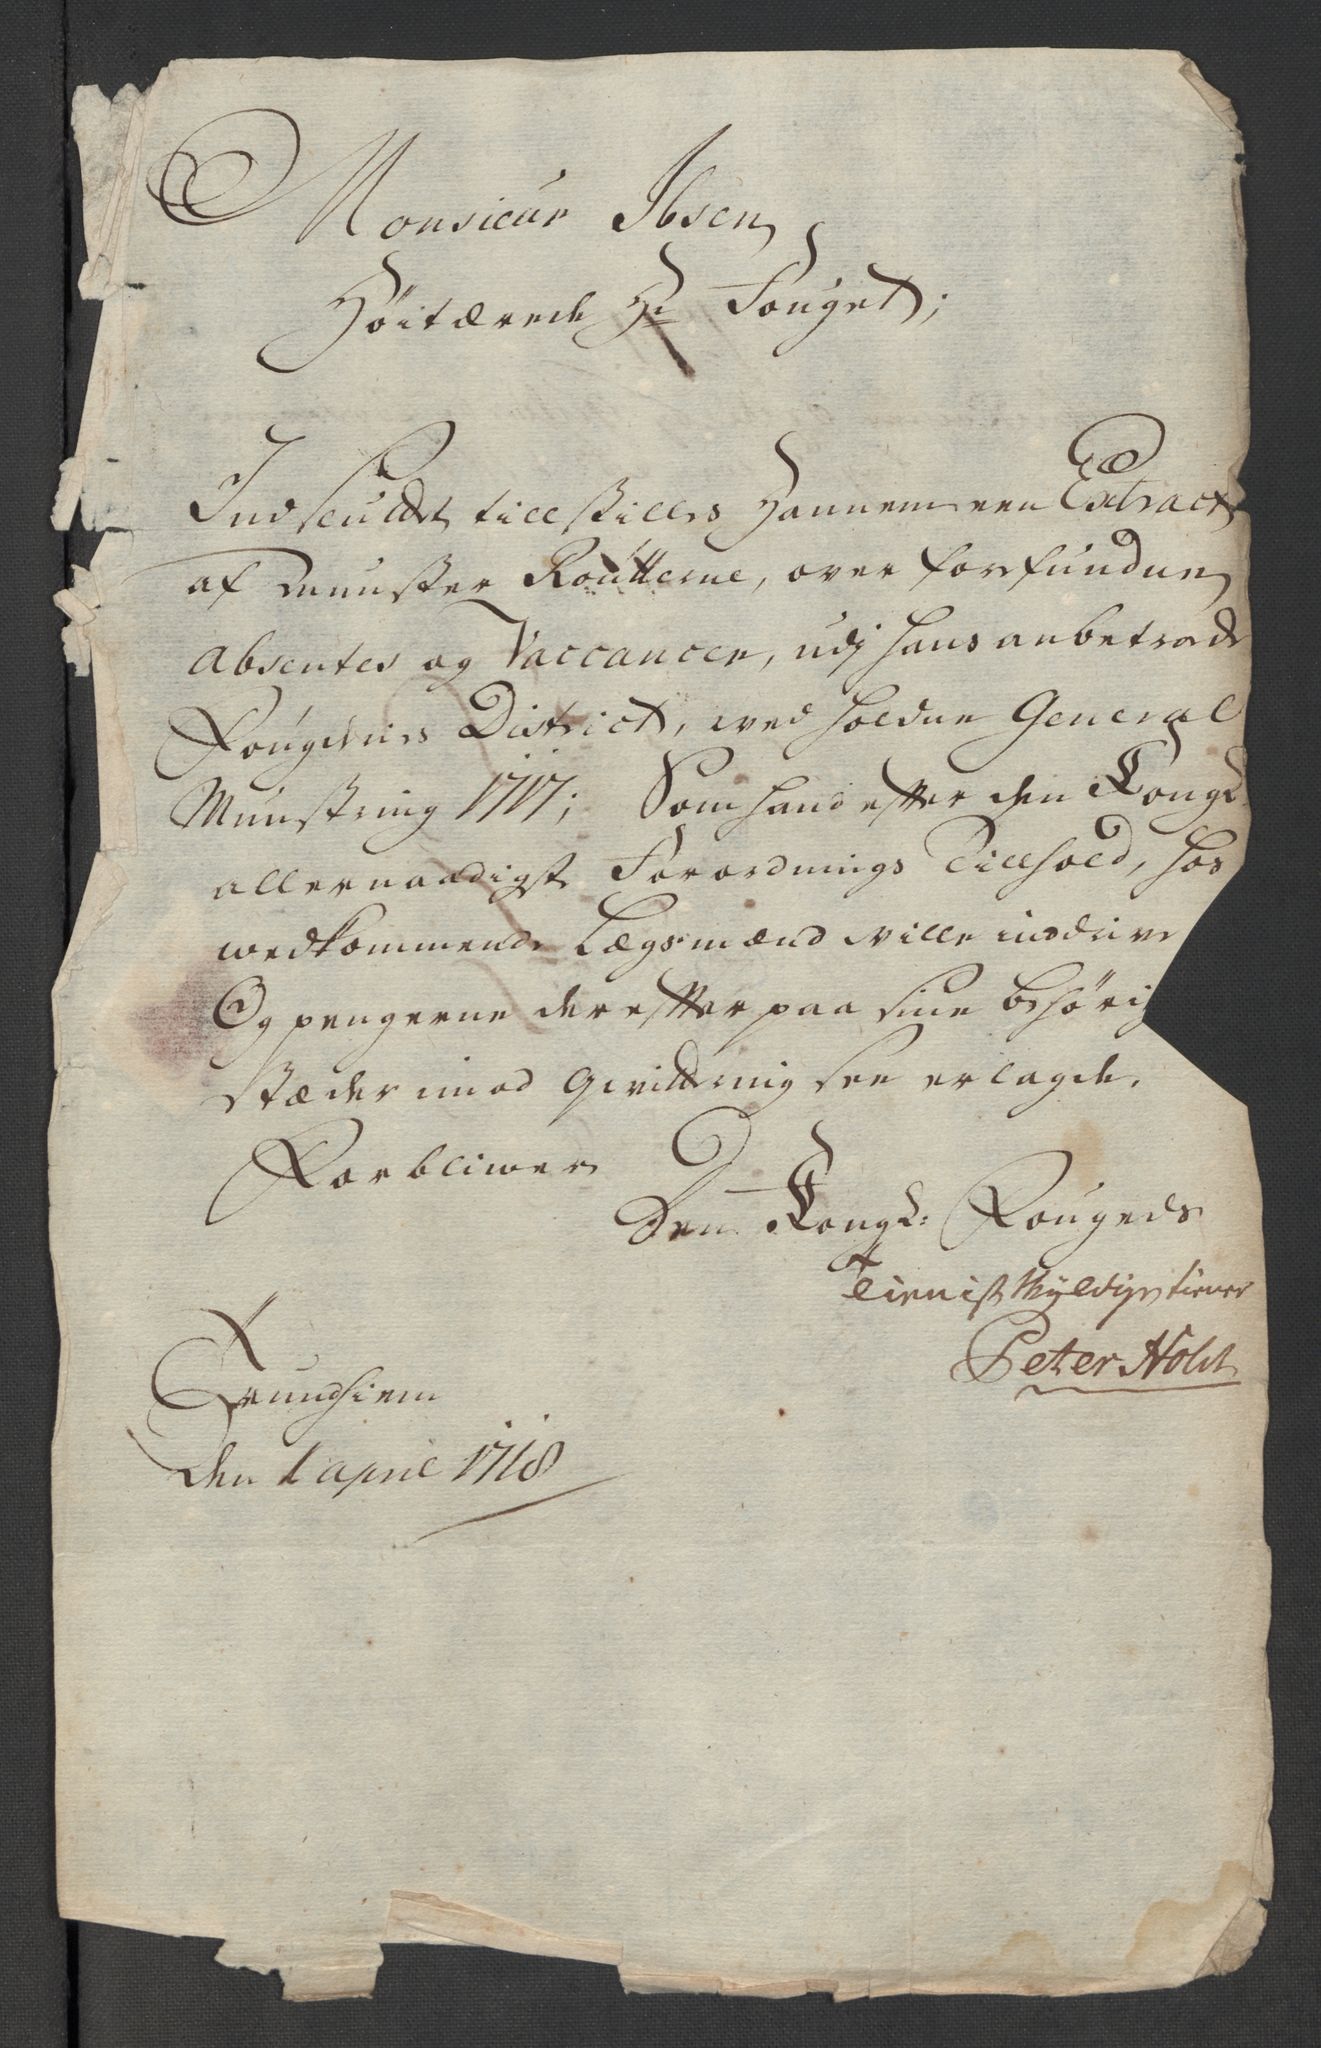 Monsieur Ibsen
Höitærede Hr Fouget;
Indsluldet tillstilles Hannem een Extract
af Munster Roullerne, over forfundne
Absentes og Vaccancer, udj hans anbetroede
Fougderies District, ved holdne General
Münstring 1717; Som hand efter den Kongl
allernaadigste Forordnings Tillhold, hos
wedkommende Lægsmænd ville inddrive
Og pengerne derefter paa sine behörig
stæder imod Qvittering see erlagde.
Forbliwer
Den Kongl: Fougeds
tienistskyldige tiener
Peter Holst
Trundhiem
den 1 april 1718